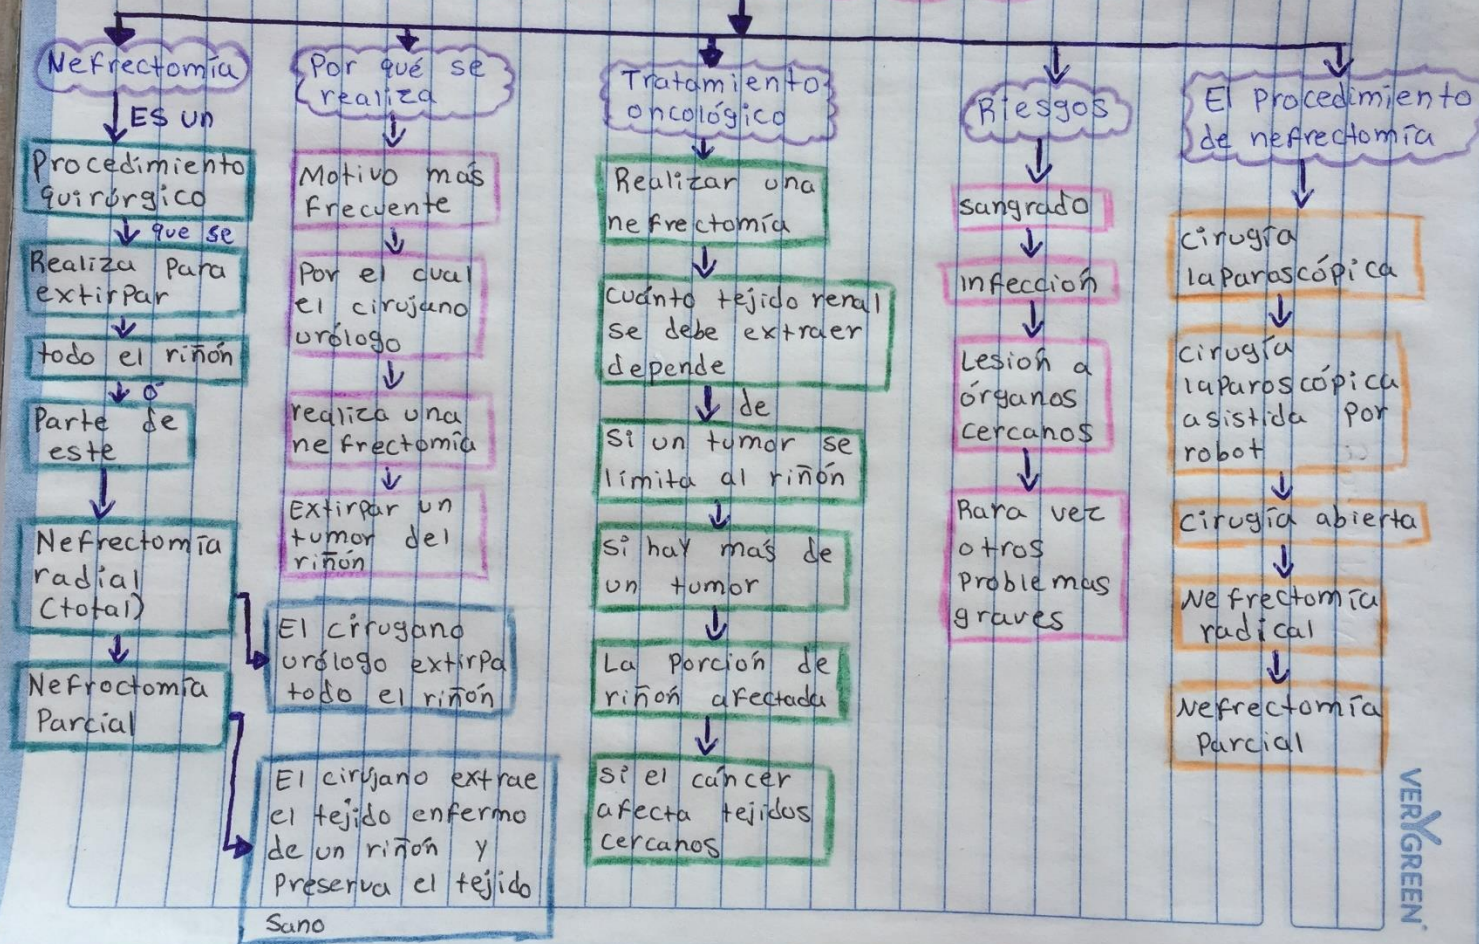 Nefrectomía
ES un
Procedimiento
quirúrgico
que se
Realiza para
extirpar
todo el riñón
ó
Parte de
este
Nefrectomía
radial
(total)
Nefroctomía
Parcial
El cirugano
urólogo extirpa
todo el riñón
El cirujano extrae
el tejido enfermo
de un riñón y
Preserva el tejido
Sano
Por qué se
realiza
Motivo más
Frecuente
Por el cual
el cirujano
urólogo
realiza una
nefrectomía
Extirpar un
tumor del
riñón
Tratamiento
oncológico
Realizar una
nefrectomía
Cuánto tejido renal
se debe extraer
depende
de
Si un tumor se
límita al riñón
Si hay mas de
un tumor
La Porción de
riñón afectada
Si el cáncer
afecta tejidos
cercanos
Riesgos
Sangrado
Infección
Lesión a
órganos
cercanos
Rara vez
otros
Problemas
graves
El Procedimiento
de nefrectomía
Cirugía
laparoscópica
Cirugía
laparoscópica
asistida por
robot
Cirugía abierta
Nefrectomía
radical
Nefrectomía
Parcial
VERYGREEN